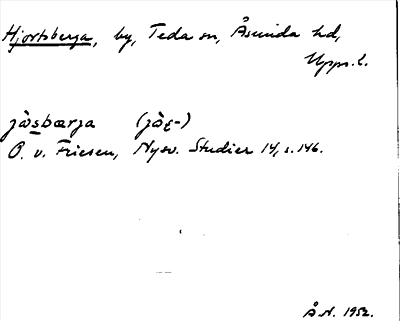 Hjortsberga, by, Teda sn, Åsunda hd,
Upps. l.
jòsbærja (jòɛ-)
O. v. Friesen, Nysv. Studier 14, s. 146.
Å.N. 1952.